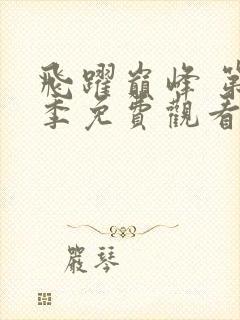 飛躍巔峰 第
季免費觀看
嚴琴